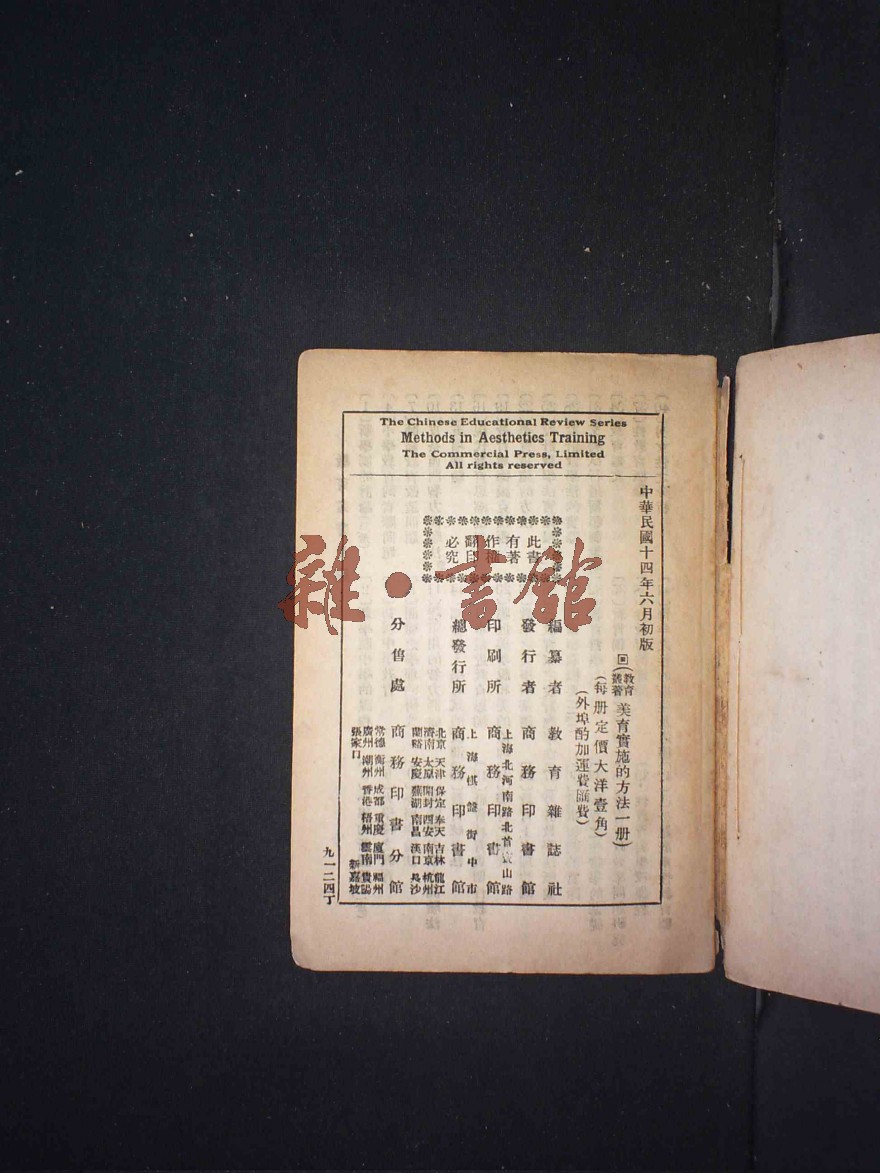 The Chinese Educational Review Series
Methods in Aesthetics Training
The Commercial Press, Limited
All rights reserved
中華民國十四年六月初版
(教育叢著 美育實施的方法一册)
(每册定價大洋壹角)
(外埠酌加運費匯費)
此書
有著
作權
翻印
必究
編纂者 教育雜誌社
發行者 商務印書館
上海北河南路北首寶山路
印刷所 商務印書館
上海棋盤街中市
總發行所 商務印書館
北京 天津 保定 奉天 吉林 龍江
濟南 太原 開封 西安 南京 杭州
蘭谿 安慶 蕪湖 南昌 漢口 長沙
分售處 商務印書分館
常德 衡州 成都 重慶 廈門 福州
廣州 潮州 香港 梧州 雲南 貴陽
張家口 新嘉坡
九一二四丁
雜·書館